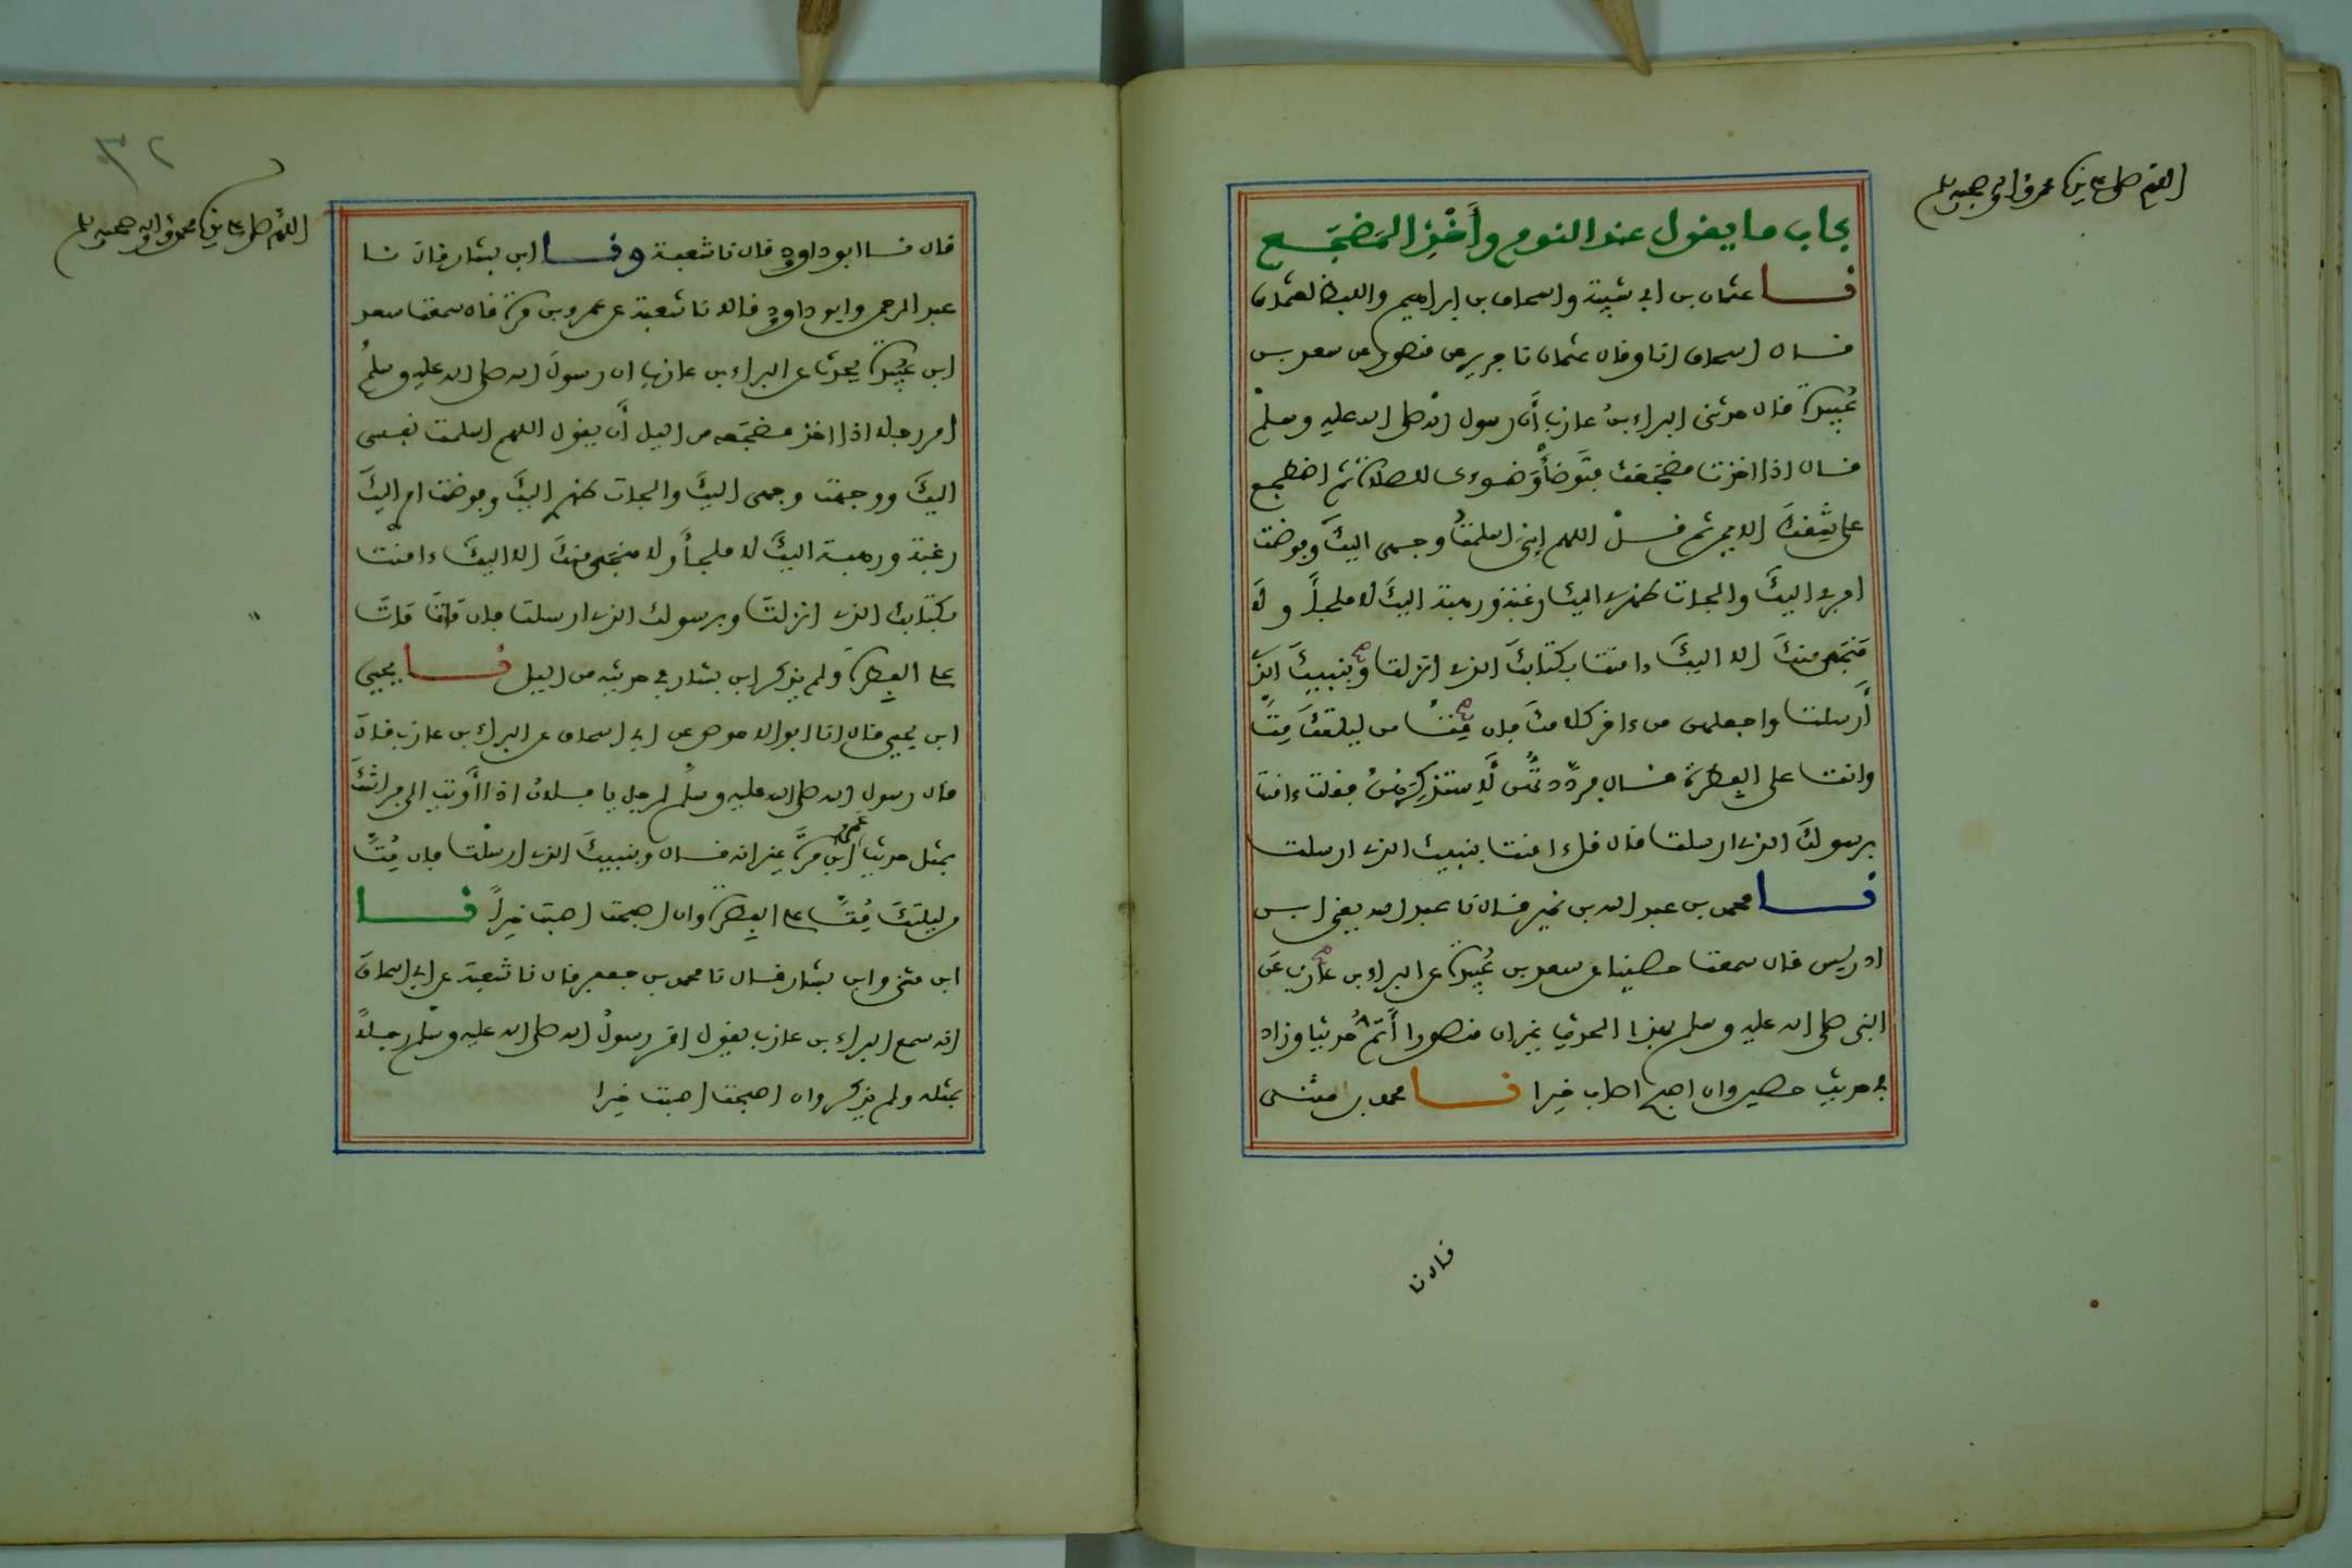 اللهم صل على سيدنا محمد وآله وصحبه وسلم
باب ما يقول عند النوم وأَخْذِ المَضجَع
نا عثمان بن ابي شيبة واسحاق بن إبراهيم واللفظ لعثمان
قال اسحاق انا وقال عثمان نا جرير عن منصور عن سعد بن
عُبيدة قال حدثني البراء بنُ عازب أَن رسول الله صلى الله عليه وسلم
قال اذا اخذت مضجَعك فتَوضأْ وُضوءك للصلاة ثم اضطجع
على شِقكَ الايمن ثم قل اللهم إني اسلمتُ وجهي اليكَ وفوضت
امري اليكَ والجأت ظهري اليك رغبة ورهبة اليكَ لا ملجأَ ولا
مَنجَى منكَ الا اليكَ ءامنت بكتابكَ الذي انزلت وبنبيكَ الذي
أَرسلت واجعلهن من ءاخر كلامكَ فإن مِتَّ من ليلتكَ مِتَّ
وانت على الفطرة قال فردَّدتُّهن لأستذكرَهن فقلت ءامنت
برسولكَ الذي ارسلت قال قل ءامنت بنبيك الذي ارسلت
نا محمد بن عبد الله بن نمير قال نا عبد الله يعني ابن
ادريس قال سمعت حصينا عن سعد بن عُبيدة عن البراء بن عازب عَن
النبي صلى الله عليه وسلم بهذا الحديث غير ان منصورا أَتَمُّ حديثا وزاد
في حديث حصين وان اصبح اصاب خيرا نا محمد بن مثنى
قال نا
٣٢
اللهم صل على سيدنا محمد وآله وصحبه وسلم
قال نا ابو داوود قال نا شعبة ونا ابن بشار قال نا
عبد الرحمن وابو داوود قالا نا شعبة عن عمرو بن مرة قال سمعت سعد
ابن عُبيدة يحدث عن البراء بن عازب ان رسولَ الله صلى الله عليه وسلم
امر رجلا اذا اخذ مضجَعه من الليل أَن يقول اللهم اسلمت نفسي
اليكَ ووجهت وجهي اليكَ والجأت ظهري اليكَ وفوضت امري اليكَ
رغبة ورهبة اليكَ لا ملجأَ ولا منجَى منكَ الا اليكَ ءامنت
بكتابك الذي انزلتَ وبرسولك الذي ارسلت فإن مَاتَ مَاتَ
على الفطرة ولم يذكر ابن بشار في حديثه من الليل نا يحيى
ابن يحيى قال انا ابو الاحوص عن ابي اسحاق عن البراء بن عازب قالَ
قال رسول الله صلى الله عليه وسلم لرجل يا فلانُ اذا أَوَيتَ الى فراشكَ
بمثل حديث عمرو ابن مرةَ غير انه قال وبنبيكَ الذي ارسلْت فإن مُتَّ
من ليلتكَ مُتَّ على الفطرة وان اصبحت اصبت خيراً نا
ابن مثنى وابن بشار قال نا محمد بن جعفر قال نا شعبة عن ابي اسحاقَ
انه سمع البراء بن عازب يقول امر رسولُ الله صلى الله عليه وسلم رجلاً
بمثله ولم يذكر وان اصبحت اصبت خيرا